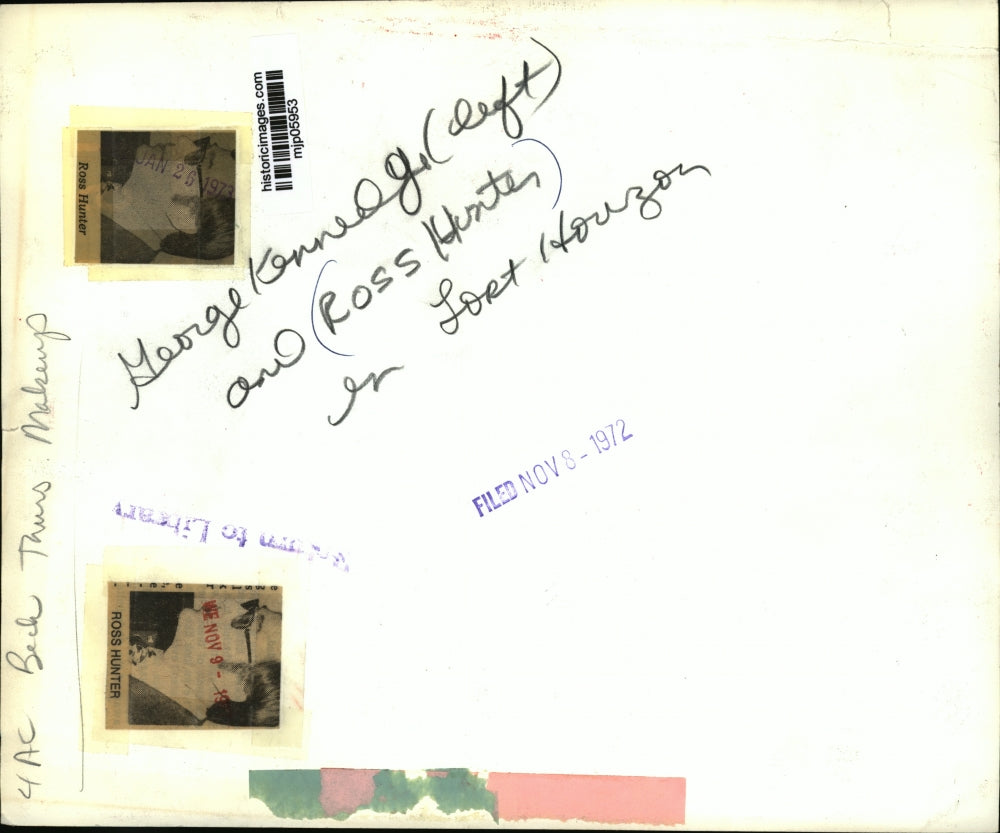 historicimages.com
mjp05953
George Kennedy (left)
and (Ross Hunter)
in Lost Horizon
JAN 26 1973
Ross Hunter
FILED NOV 8 - 1972
Return to Library
NOV 9 - 19
ROSS HUNTER
4 AC Beck Thurs. Makeup